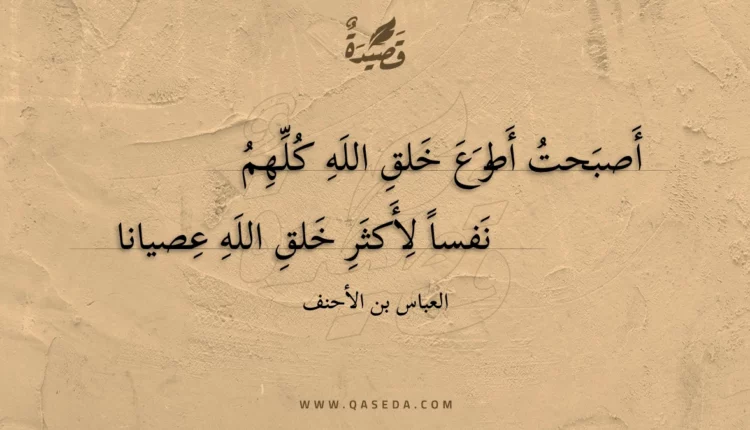 قَصِيدَةٌ
أَصبَحتُ أَطوَعَ خَلقِ اللَهِ كُلِّهِمُ
نَفساً لِأَكثَرِ خَلقِ اللَهِ عِصيانا
العباس بن الأحنف
WWW.QASEDA.COM